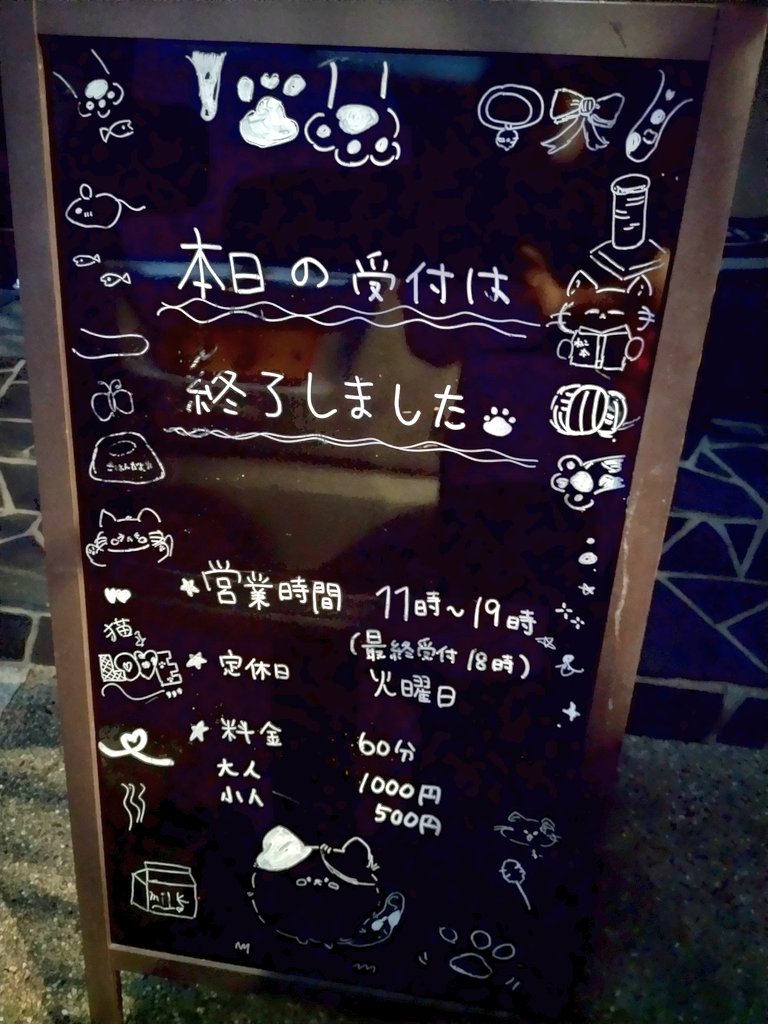 本日の受付は
終了しました
松
本
ごはんだよ
☆営業時間 11時～19時
(最終受付 18時)
猫
LOVE
☆定休日 火曜日
☆料金 60分
大人 1000円
小人 500円
milk